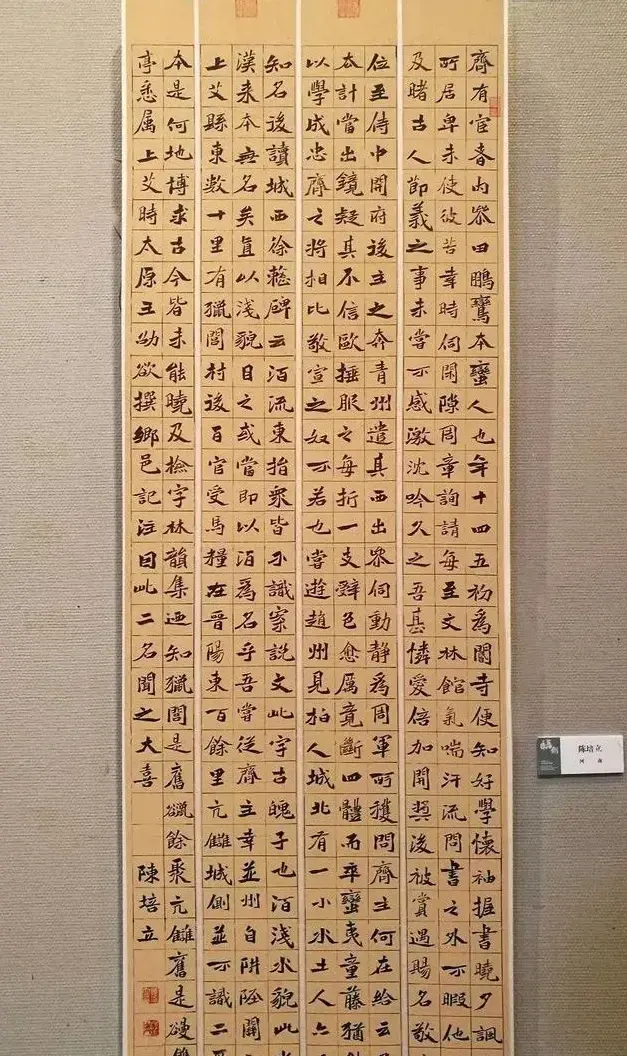 齊有宦者內參田鵬鸞本蠻人也年十四五初為閽寺便知好學懷袖握書曉夕諷
所居卑末使彼苦辛時伺閑隙周章詢請每至文林館氣喘汗流問書之外不暇他
及睹古人節義之事未嘗不感激沈吟久之吾甚憐愛倍加開獎後被賞遇賜名敬
位至侍中開府後主之奔青州遣其西出參伺動靜為周軍所獲問齊主何在給云
太計當出鏡疑其不信歐捶服之每折一支辭色愈厲竟斷四體而卒蠻夷童藤猶
以學成忠齊之將相比敬宣之奴不若也嘗遊趙州見柏人城北有一小水土人亦
知名後讀城西徐整碑云洦流東指眾皆不識案說文此字古魄子也洦淺水貌此
漢來本無名矣直以淺貌目之或當即以洦為名乎吾嘗從齊主幸並州自阱陘關
上艾縣東數十里有獵閭村後百官受馬糧在晉陽東百餘里亢雔城側並不識二
本是何地博求古今皆未能曉及檢字林韻集迺知獵閭是舊餘聚亢雔舊是
亭悉屬上艾時太原王劭欲撰鄉邑記注因此二名聞之大喜
陳培立
陈培立
河南